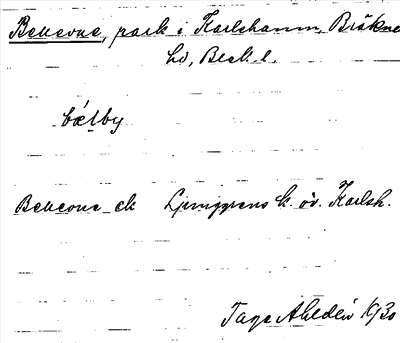 Bellevue, park i Karlshamn, Bräkne
hd, Blek. l.
bǽlby
Bellevue ek Ljunggrens k. öv. Karlsh.
Tage Ahldén 1930